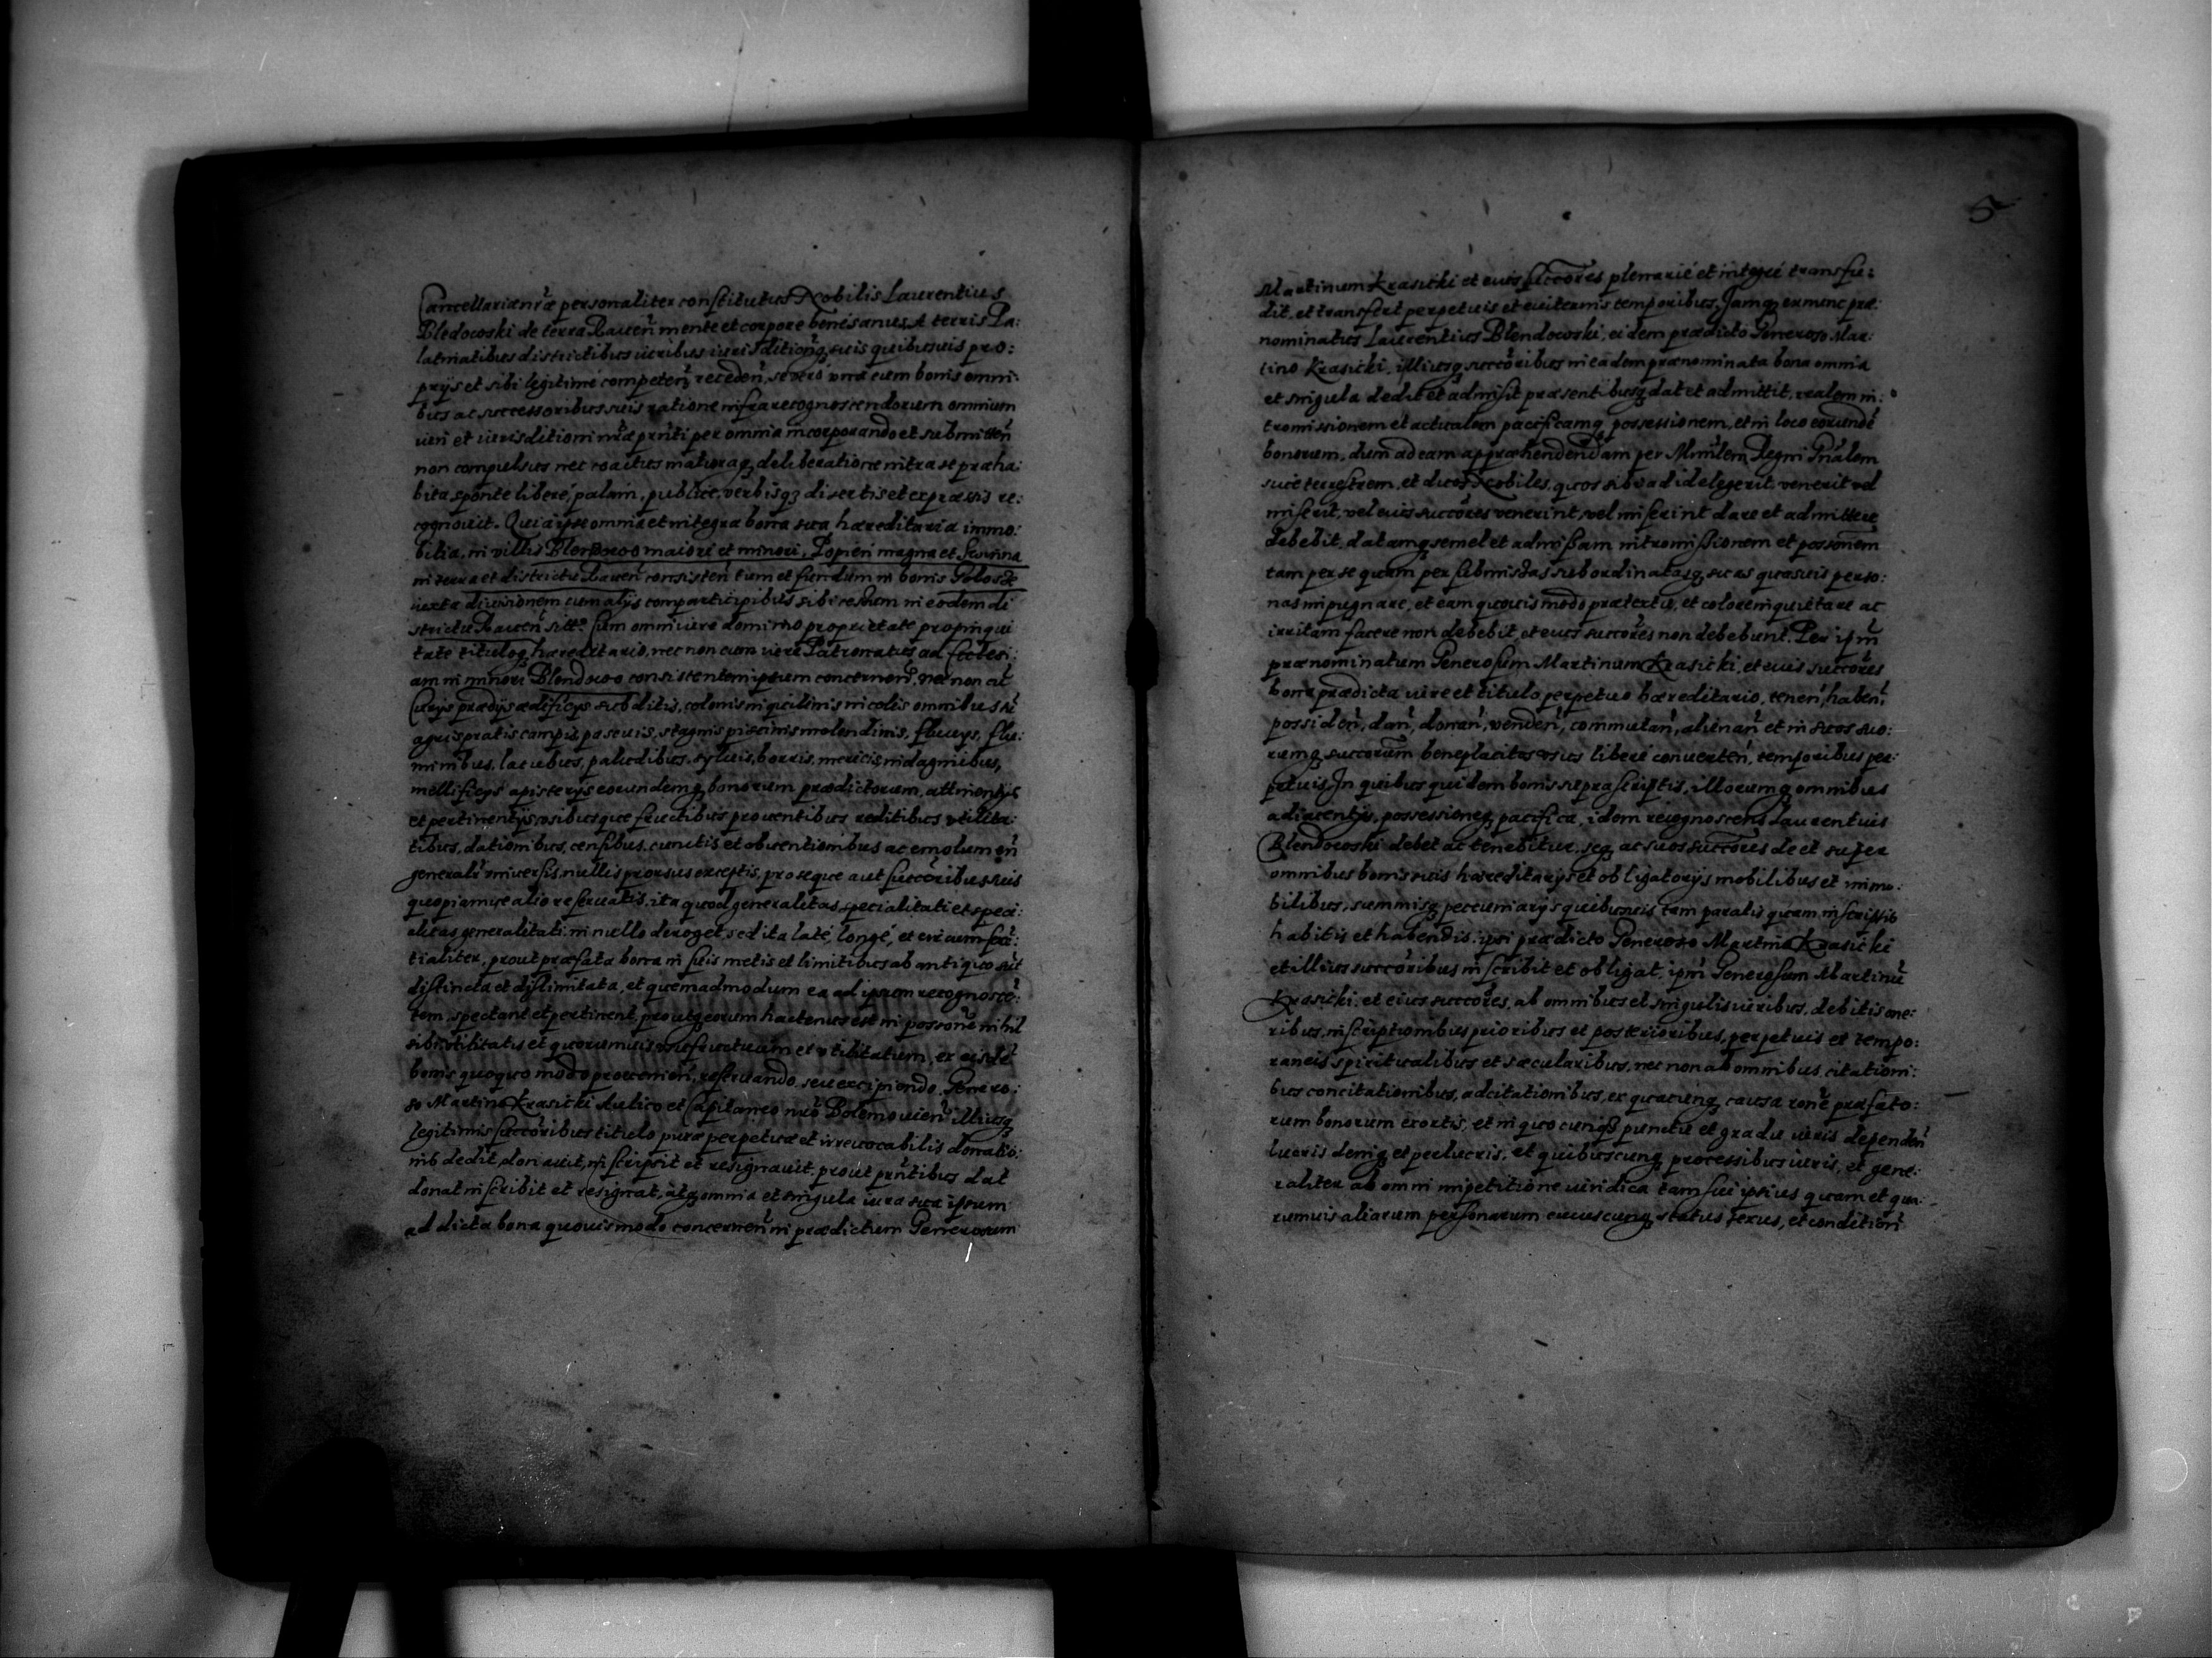 Cancellariae nrae personaliter constitutus Nobilis Laurentius
Bledowski de terra Raven mente et corpore bene sanus, A terris Pa:
latinatibus districtibus iuribus iurisditionq suis quibusuis pro:
prys et sibi legitime competen receden, se vero una cum bonis omni:
bus ac successoribus suis ratione infra recognoscendorum omnium
iuri et iurisditioni nrae pnti per omnia incorporando et submitten
non compulsus nec coactus maturaq deliberatione intra se praeha:
bita, sponte libere, palam, publice, verbisq disertis et expressis re:
cognouit. Quia ipse omnia et integra bona sua haereditaria immo:
bilia, in villis Blendowo maiori et minori, Popien magna et
in terra et districtu Raven consisten tum et fundum in bonis
iuxta diuisionem cum alijs comparticipibus sibi in eodem di
strictu Raven Cum omni iure dominio proprietate propinqui
tate tituloq haereditario, nec non cum iure Patronatus ad Ecclesi:
am in minori Blendowo consistentem ipsum concernen, nec non cu
Curys praedys aedificys subditis, colonis inquilinis incolis omnibus
aquis pratis campis, pascuis, stagnis piscinis molendinis, fluuys, flu:
minibus, lacubus, paludibus, syluis, borris, mericis indaginibus,
mellificys apisterys eorundemq bonorum praedictorum, attinentys
et pertinentijs usibusque fructibus prouentibus reditibus utilita:
tibus, dationibus, censibus, cunctis et obuentionibus ac emolumen
generalr uniuersis, nullis prorsus exceptis, pro seque aut succoribus suis
quopiamue alio reseruatis, ita quod generalitas specialitati et speci:
alitas generalitati in nullo deroget, sed ita late, longe, et
tialiter, prout praefata bona in suis metis et limitibus ab antiquo sut
distincta et dislimitata, et quemadmodum ea ad ipsum recognosce:
tem, spectant et pertinent, eorum hactenus est in possone nihil
sibi utilitatis et quorumuis usufructuum et utilitatum, ex eisde
bonis quoquo modo prouenien, reseruando, seu excipiendo, Genero:
so Martino Krasicki Aulico et Capitaneo nro Bolemouien illiusq
legitimis succoribus titulo purae perpetuae et irreuocabilis donatio:
nis dedit, donauit, inscripsit et resignauit, prout pntibus dat
donat inscribit et resignat, atq omnia et singula iura sua ipsum
ad dicta bona quouismodo concernen in praedictum Generosum
5
Martinum Krasicki et euis succores plenarie et integre transfu:
dit, et transfert perpetuis et euiternis temporibus, Jamq ex nunc prae:
nominatus Laurentius Blendowski, eidem praedicto Generoso Mar:
tino Krasicki, illiusq succoribus in eadem praenominata bona omnia
et singula dedit et admisit praesentibusq dat et admittit, realem in:
tromissionem et actualem pacificamq possessionem, et in loco eorunde
bonorum, dum ad eam apprehendendam per Minrlem Regni Gnalem
siue terrestrem, et duos Nobiles, quos sibi ad id elegerit, venerit vel
miserit, vel euis succores venerint, vel miserint dare et admittere
debebit, datamq semel et admissam intromissionem et possonem
tam per se quam per submissas subordinatasq suas quasuis perso:
nas impugnare, et eam quouis modo praetextu, et colore inquietare ac
irritam facere non debebit, et euis succores non debebunt. Per ipm
praenominatum Generosum Martinum Krasicki, et euis succores
bona praedicta iure et titulo perpetuo haereditario, tenen, haben,
possiden, dan, donan, venden, commutan, alienan et in suos suo:
rumq succorum beneplacitos usus libere conuerten, temporibus per:
petuis. In quibus quidem bonis suprascriptis, illorumq omnibus
adiacentys, possessioneq pacifica, idem recognoscens Laurentius
Blendowski debet ac tenebitur, seq ac suos succores de et super
omnibus bonis suis haereditarys et obligatorys mobilibus et immo:
bilibus, summisq pecuniarys quibusuis tam paratis quam inscriptis
habitis et habendis, ipsi praedicto Generoso Martino Krasicki
et illius succoribus inscribit et obligat, ipm Generosum Martinu
Krasicki, et eius succores, ab omnibus et singulis iuribus, debitis one:
ribus, inscriptionibus prioribus et posterioribus, perpetuis et tempo:
raneis spiritualibus et saecularibus, nec non ab omnibus citationi:
bus concitationibus, adcitationibus, ex quacunq causa rone praefato:
rum bonorum exortis, et in quocunq puncto et gradu iuris dependen
lucris deniq et perlucris, et quibuscunq processibus iuris, et gene:
raliter ab omni impetitione iuridica tam sui ipsius quam et quo:
rumuis aliarum personarum cuiuscunq status sexus, et condition